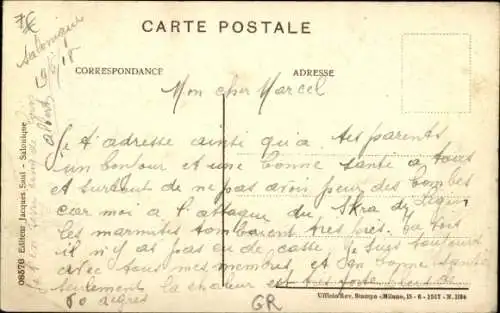 7€
CARTE POSTALE
Salonique
CORRESPONDANCE
ADRESSE
Mon cher Marcel
Je t'adresse ainsi qu'a tes parents
un bonjour et une bonne santé a tous
et surtout de ne pas avoir peur des bombes
car moi a l'attaque du Skra di Legen
les marmites tombaient tres pres tu vois
il n'y as pas eu de casse Je suis toujours
avec tous mes memoires et en bonne santé
seulement la chaleur est tres forte
60 degres
08576 Editeur Jacques Saul - Salonique
Ufficio Rev. Stampa - Milano, 15-6-1917 - N. 1184
GR